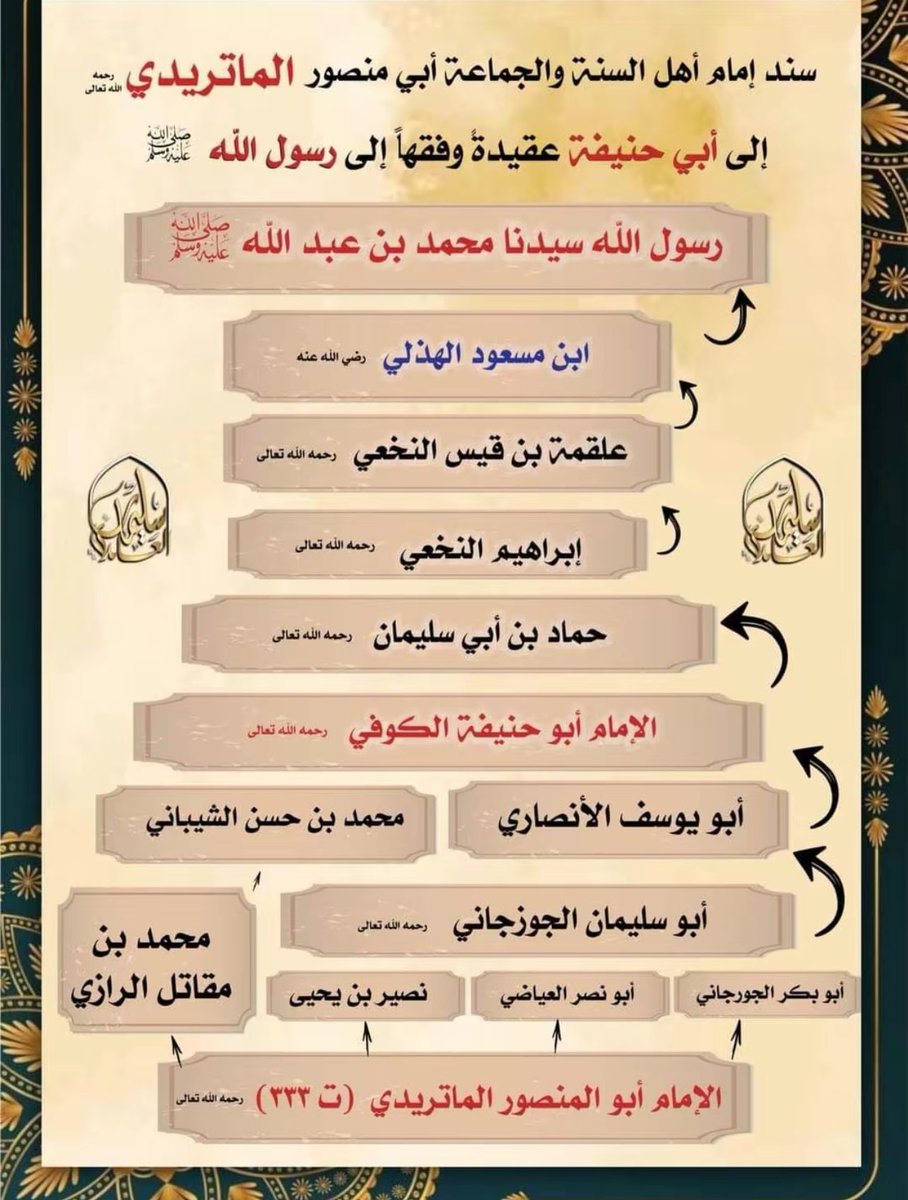 سند إمام أهل السنة والجماعة أبي منصور الماتريدي رحمه الله تعالى
إلى أبي حنيفة عقيدةً وفقهاً إلى رسول الله ﷺ
رسول الله سيدنا محمد بن عبد الله ﷺ
ابن مسعود الهذلي رضي الله عنه
علقمة بن قيس النخعي رحمه الله تعالى
إبراهيم النخعي رحمه الله تعالى
حماد بن أبي سليمان رحمه الله تعالى
الإمام أبو حنيفة الكوفي رحمه الله تعالى
أبو يوسف الأنصاري
محمد بن حسن الشيباني
أبو سليمان الجوزجاني رحمه الله تعالى
محمد بن
مقاتل الرازي
أبو بكر الجورجاني
أبو نصر العياضي
نصير بن يحيى
الإمام أبو المنصور الماتريدي (ت ٣٣٣) رحمه الله تعالى